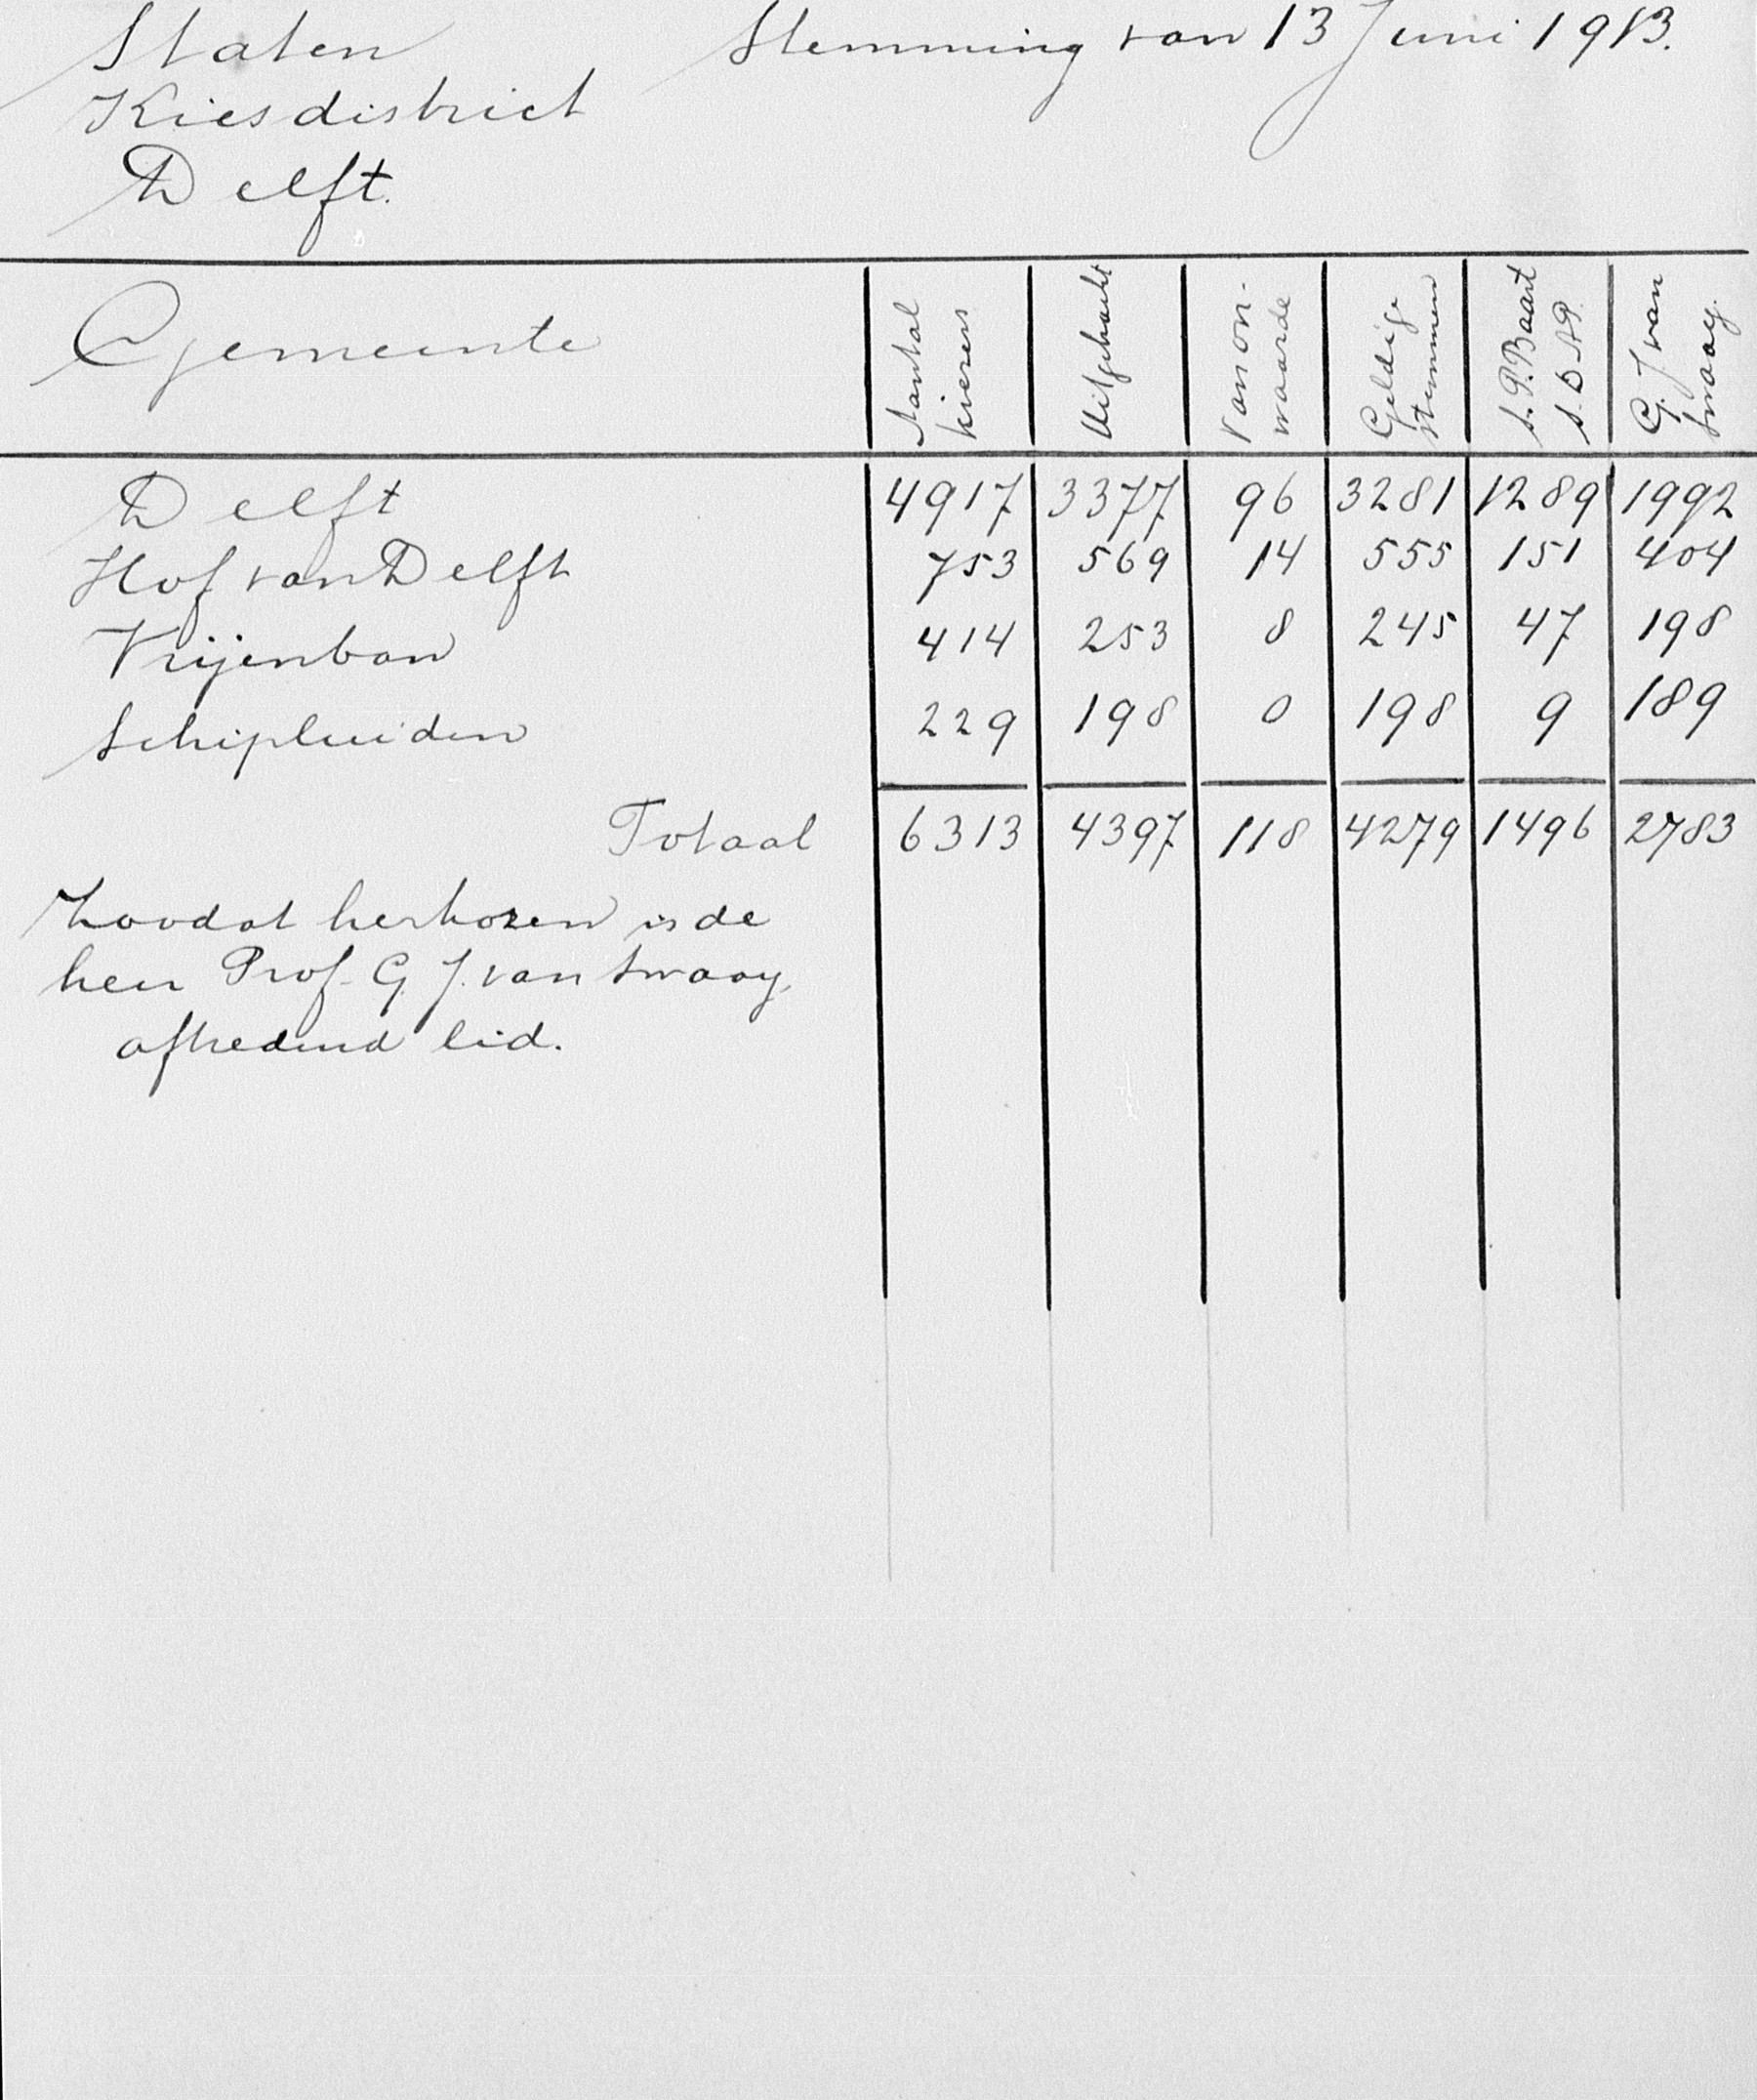 Staten Stemming van 13 Juni 1913.
Kiesdistrict
Delft.
Gemeente Aantal kiezers Uitgebracht Van on-waarde Geldige stemmen S. P. Baart S.D.A.P. G. J. van Swaay.
Delft 4917 3377 96 3281 1289 1992
Hof van Delft 753 569 14 555 151 404
Vrijenban 414 253 8 245 47 198
Schipluiden 229 198 0 198 9 189
Totaal 6313 4397 118 4279 1496 2783
Zoodat herkozen is de
heer Prof. G. J. van Swaay,
aftredend lid.